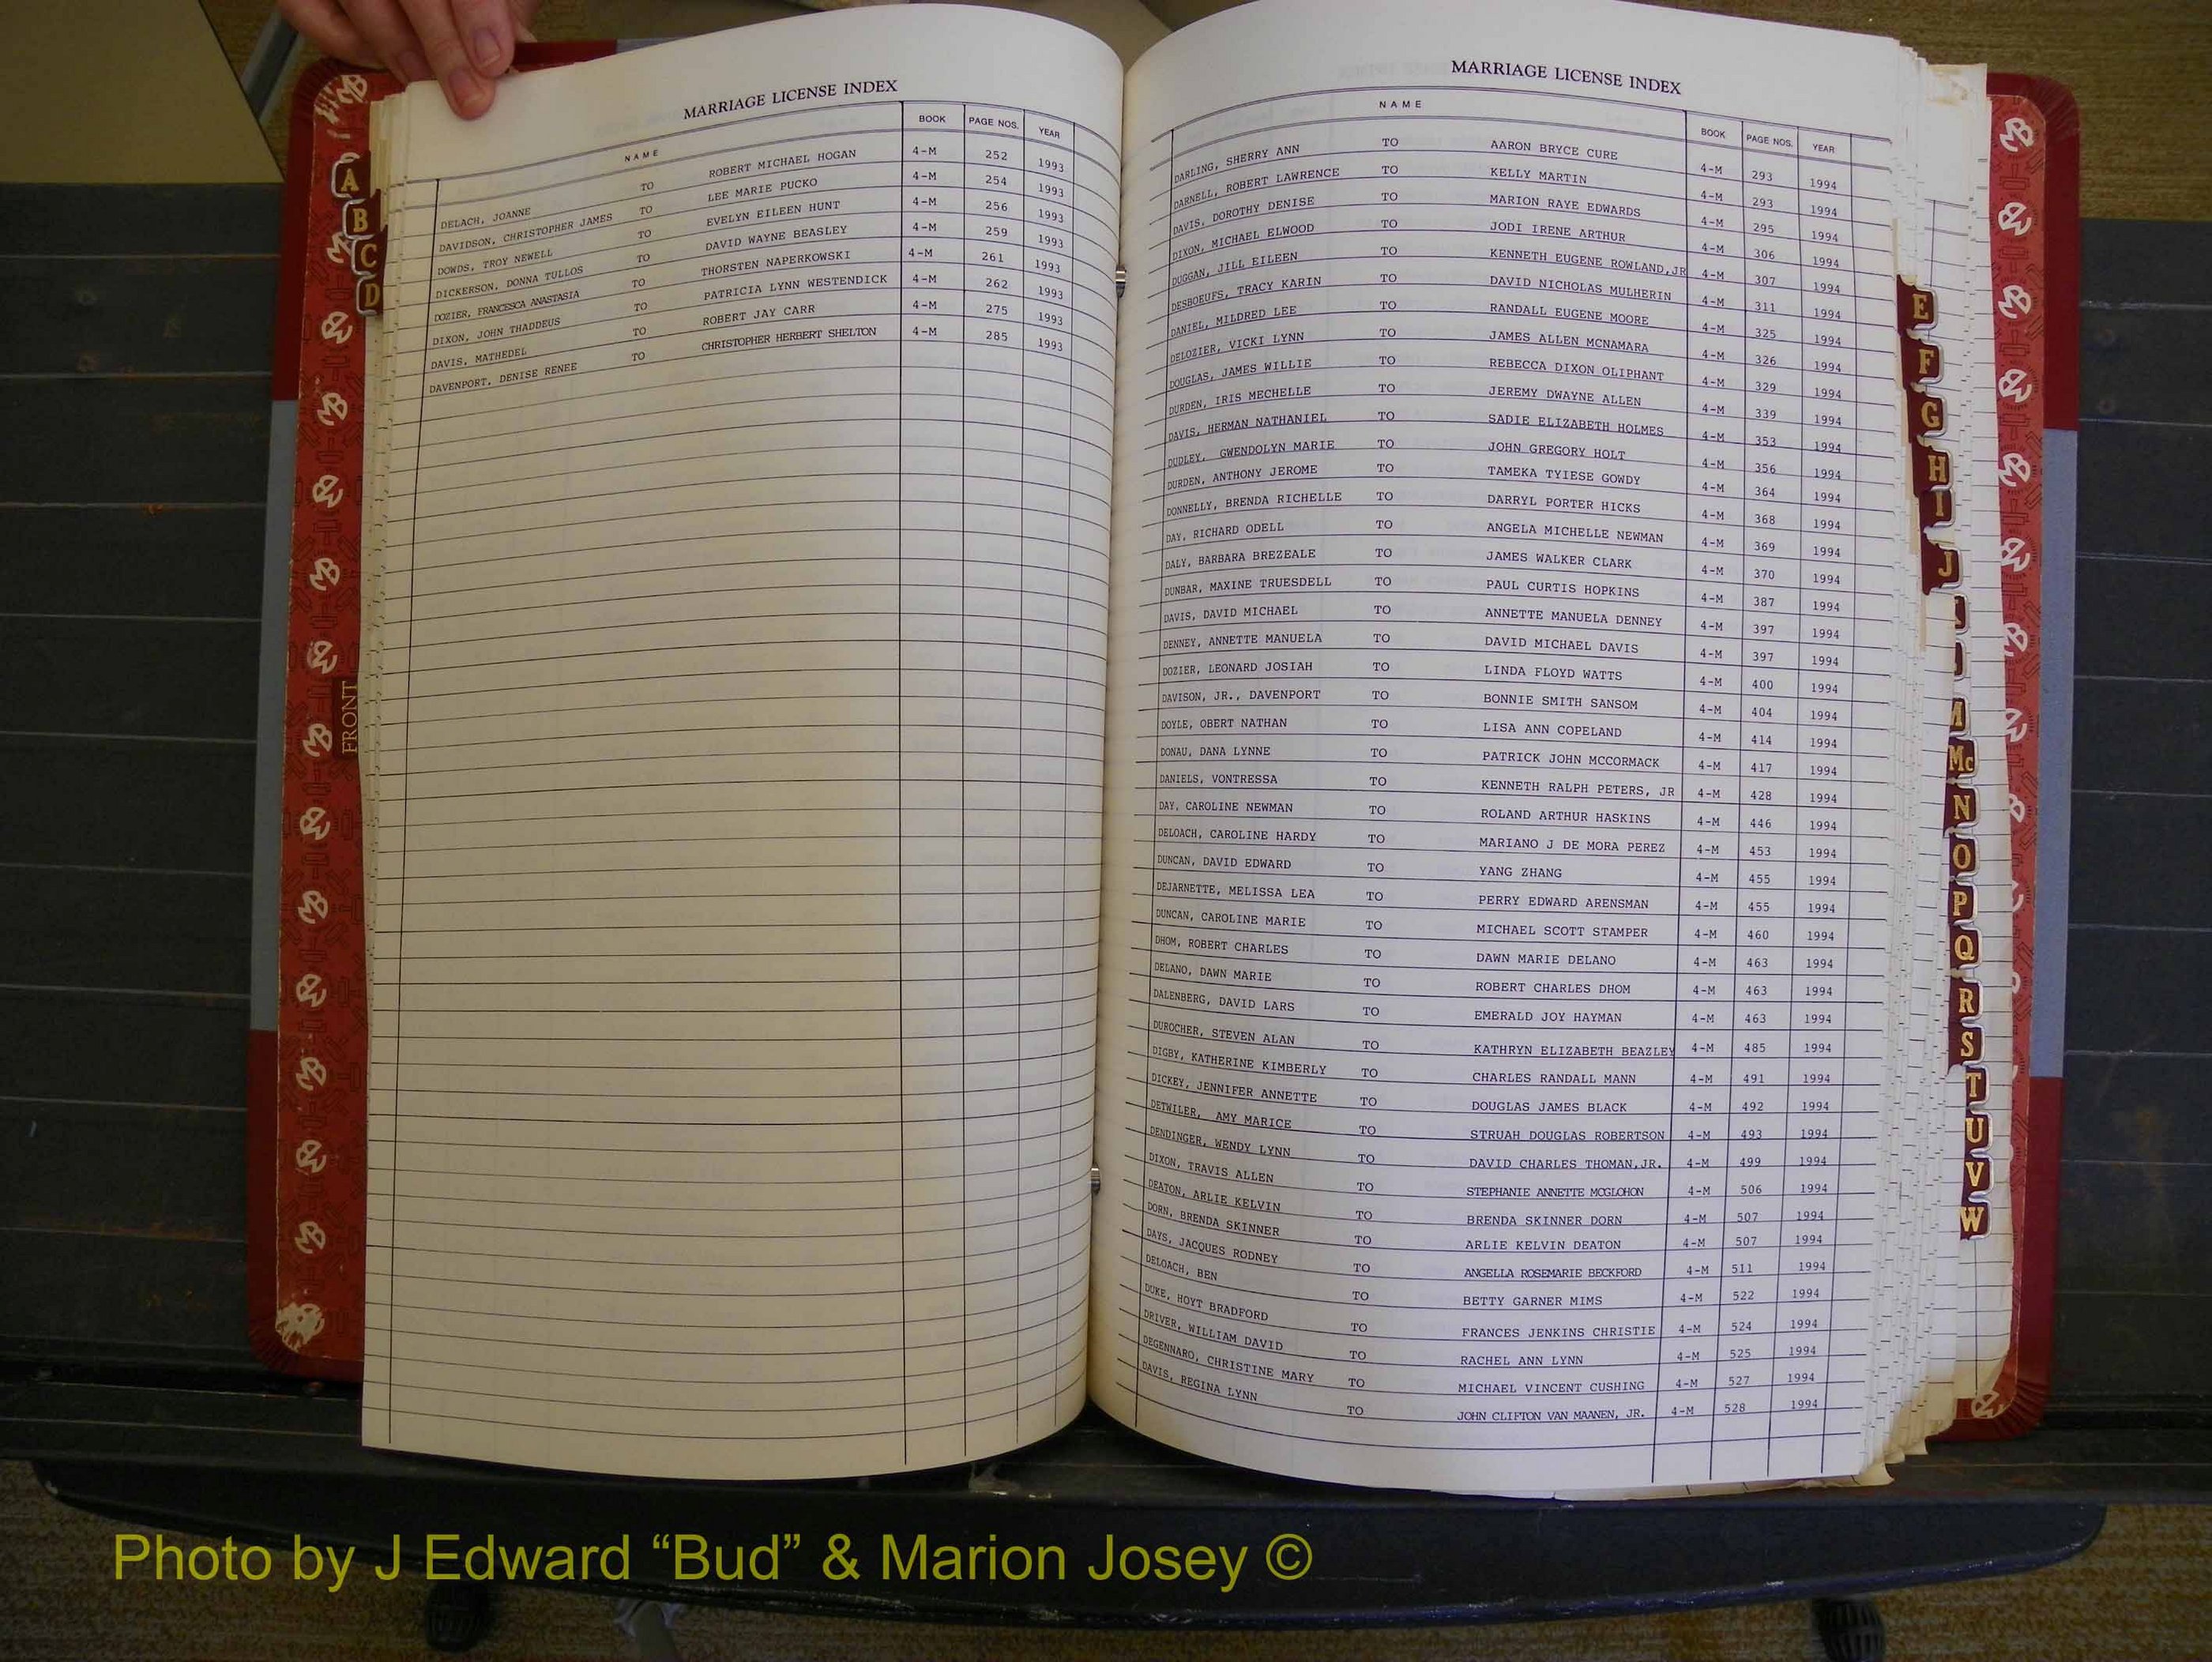 MARRIAGE LICENSE INDEX
NAME BOOK PAGE NOS. YEAR
DELACH, JOANNE TO ROBERT MICHAEL HOGAN 4-M 252 1993
DAVIDSON, CHRISTOPHER JAMES TO LEE MARIE PUCKO 4-M 254 1993
DOWDS, TROY NEWELL TO EVELYN EILEEN HUNT 4-M 256 1993
DICKERSON, DONNA TULLOS TO DAVID WAYNE BEASLEY 4-M 259 1993
DOZIER, FRANCESCA ANASTASIA TO THORSTEN NAPERKOWSKI 4-M 261 1993
DIXON, JOHN THADDEUS TO PATRICIA LYNN WESTENDICK 4-M 262 1993
DAVIS, MATHEDEL TO ROBERT JAY CARR 4-M 275 1993
DAVENPORT, DENISE RENEE TO CHRISTOPHER HERBERT SHELTON 4-M 285 1993
MARRIAGE LICENSE INDEX
NAME BOOK PAGE NOS. YEAR
DARLING, SHERRY ANN TO AARON BRYCE CURE 4-M 293 1994
DARNELL, ROBERT LAWRENCE TO KELLY MARTIN 4-M 293 1994
DAVIS, DOROTHY DENISE TO MARION RAYE EDWARDS 4-M 295 1994
DIXON, MICHAEL ELWOOD TO JODI IRENE ARTHUR 4-M 306 1994
DUGGAN, JILL EILEEN TO KENNETH EUGENE ROWLAND,JR 4-M 307 1994
DESBOEUFS, TRACY KARIN TO DAVID NICHOLAS MULHERIN 4-M 311 1994
DANIEL, MILDRED LEE TO RANDALL EUGENE MOORE 4-M 325 1994
DELOZIER, VICKI LYNN TO JAMES ALLEN MCNAMARA 4-M 326 1994
DOUGLAS, JAMES WILLIE TO REBECCA DIXON OLIPHANT 4-M 329 1994
DURDEN, IRIS MECHELLE TO JEREMY DWAYNE ALLEN 4-M 339 1994
DAVIS, HERMAN NATHANIEL TO SADIE ELIZABETH HOLMES 4-M 353 1994
DUDLEY, GWENDOLYN MARIE TO JOHN GREGORY HOLT 4-M 356 1994
DURDEN, ANTHONY JEROME TO TAMEKA TYIESE GOWDY 4-M 364 1994
DONNELLY, BRENDA RICHELLE TO DARRYL PORTER HICKS 4-M 368 1994
DAY, RICHARD ODELL TO ANGELA MICHELLE NEWMAN 4-M 369 1994
DALY, BARBARA BREZEALE TO JAMES WALKER CLARK 4-M 370 1994
DUNBAR, MAXINE TRUESDELL TO PAUL CURTIS HOPKINS 4-M 387 1994
DAVIS, DAVID MICHAEL TO ANNETTE MANUELA DENNEY 4-M 397 1994
DENNEY, ANNETTE MANUELA TO DAVID MICHAEL DAVIS 4-M 397 1994
DOZIER, LEONARD JOSIAH TO LINDA FLOYD WATTS 4-M 400 1994
DAVISON, JR., DAVENPORT TO BONNIE SMITH SANSOM 4-M 404 1994
DOYLE, OBERT NATHAN TO LISA ANN COPELAND 4-M 414 1994
DONAU, DANA LYNNE TO PATRICK JOHN MCCORMACK 4-M 417 1994
DANIELS, VONTRESSA TO KENNETH RALPH PETERS, JR 4-M 428 1994
DAY, CAROLINE NEWMAN TO ROLAND ARTHUR HASKINS 4-M 446 1994
DELOACH, CAROLINE HARDY TO MARIANO J DE MORA PEREZ 4-M 453 1994
DUNCAN, DAVID EDWARD TO YANG ZHANG 4-M 455 1994
DEJARNETTE, MELISSA LEA TO PERRY EDWARD ARENSMAN 4-M 455 1994
DUNCAN, CAROLINE MARIE TO MICHAEL SCOTT STAMPER 4-M 460 1994
DHOM, ROBERT CHARLES TO DAWN MARIE DELANO 4-M 463 1994
DELANO, DAWN MARIE TO ROBERT CHARLES DHOM 4-M 463 1994
DALENBERG, DAVID LARS TO EMERALD JOY HAYMAN 4-M 463 1994
DUROCHER, STEVEN ALAN TO KATHRYN ELIZABETH BEAZLEY 4-M 485 1994
DIGBY, KATHERINE KIMBERLY TO CHARLES RANDALL MANN 4-M 491 1994
DICKEY, JENNIFER ANNETTE TO DOUGLAS JAMES BLACK 4-M 492 1994
DETWILER, AMY MARICE TO STRUAH DOUGLAS ROBERTSON 4-M 493 1994
DENDINGER, WENDY LYNN TO DAVID CHARLES THOMAN,JR. 4-M 499 1994
DIXON, TRAVIS ALLEN TO STEPHANIE ANNETTE MCGLOHON 4-M 506 1994
DEATON, ARLIE KELVIN TO BRENDA SKINNER DORN 4-M 507 1994
DORN, BRENDA SKINNER TO ARLIE KELVIN DEATON 4-M 507 1994
DAYS, JACQUES RODNEY TO ANGELLA ROSEMARIE BECKFORD 4-M 511 1994
DELOACH, BEN TO BETTY GARNER MIMS 4-M 522 1994
DUKE, HOYT BRADFORD TO FRANCES JENKINS CHRISTIE 4-M 524 1994
DRIVER, WILLIAM DAVID TO RACHEL ANN LYNN 4-M 525 1994
DEGENNARO, CHRISTINE MARY TO MICHAEL VINCENT CUSHING 4-M 527 1994
DAVIS, REGINA LYNN TO JOHN CLIFTON VAN MAANEN, JR. 4-M 528 1994
A
B
C
D
FRONT
E
F
G
H
I
J
M
Mc
N
O
P
Q
R
S
T
U
V
W
Photo by J Edward “Bud” & Marion Josey ©